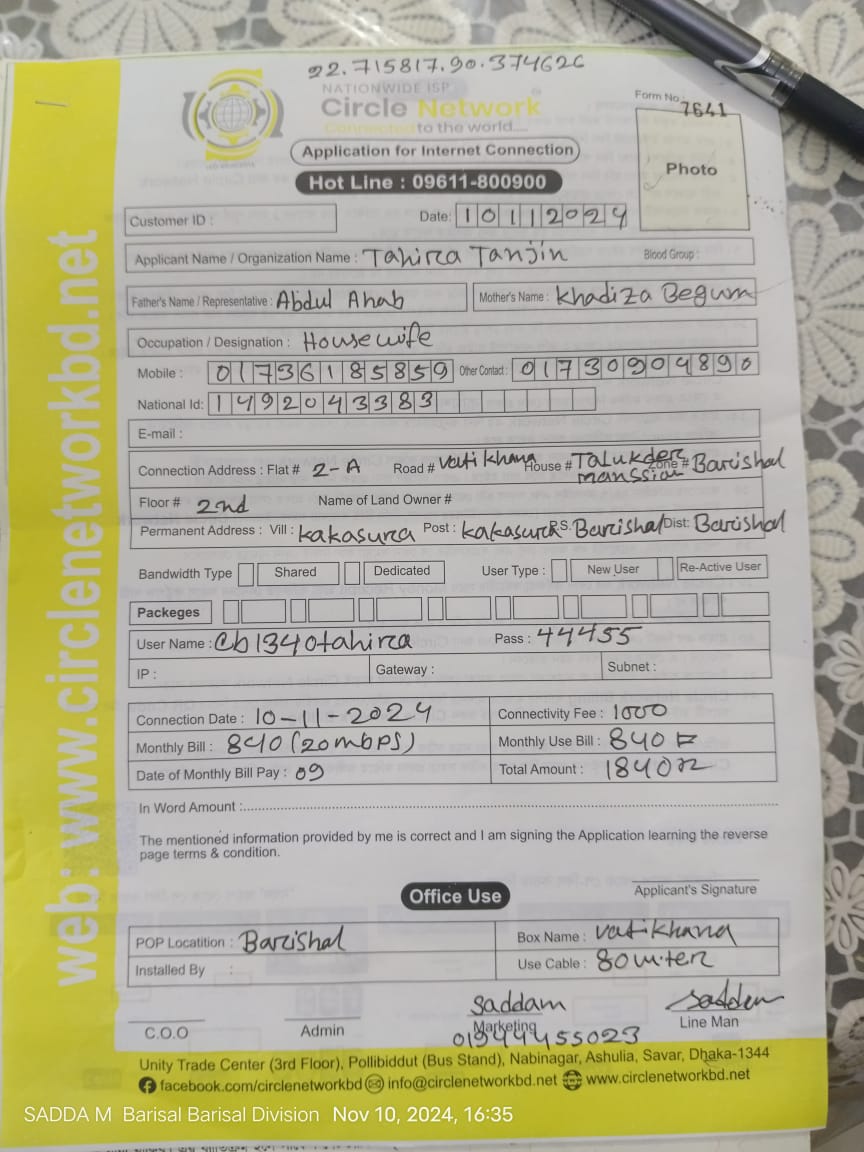 22.715817.90.374626
NATIONWIDE ISP
Circle Network
Connected to the world....
Form No.: 7641
Application for Internet Connection
Photo
Hot Line : 09611-800900
Customer ID :
Date: 10112024
Applicant Name / Organization Name : Tahira Tanjin Blood Group :
Father's Name / Representative : Abdul Ahab Mother's Name : Khadiza Begum
Occupation / Designation : Housewife
Mobile : 01736185859 Other Contact : 01730904890
National Id: 1492043383
E-mail :
Connection Address : Flat # 2-A Road # vatikhana House # Talukder manssion Zone # Barishal
Floor # 2nd Name of Land Owner #
Permanent Address : Vill : kakasura Post : kakasura P.S. Barishal Dist: Barishal
Bandwidth Type Shared Dedicated User Type : New User Re-Active User
Packeges
User Name : cb1340tahira Pass : 44455
IP : Gateway : Subnet :
Connection Date : 10-11-2024 Connectivity Fee : 1000
Monthly Bill : 840 (20mbps) Monthly Use Bill : 840
Date of Monthly Bill Pay : 09 Total Amount : 1840
In Word Amount :
The mentioned information provided by me is correct and I am signing the Application learning the reverse
page terms & condition.
Applicant's Signature
Office Use
POP Locatition : Barishal Box Name : vatikhana
Installed By : Use Cable : 80 miter
saddam sadden
C.O.O Admin Marketing Line Man
01944455023
Unity Trade Center (3rd Floor), Pollibiddut (Bus Stand), Nabinagar, Ashulia, Savar, Dhaka-1344
facebook.com/circlenetworkbd info@circlenetworkbd.net www.circlenetworkbd.net
web: www.circlenetworkbd.net
SADDA M Barisal Barisal Division Nov 10, 2024, 16:35